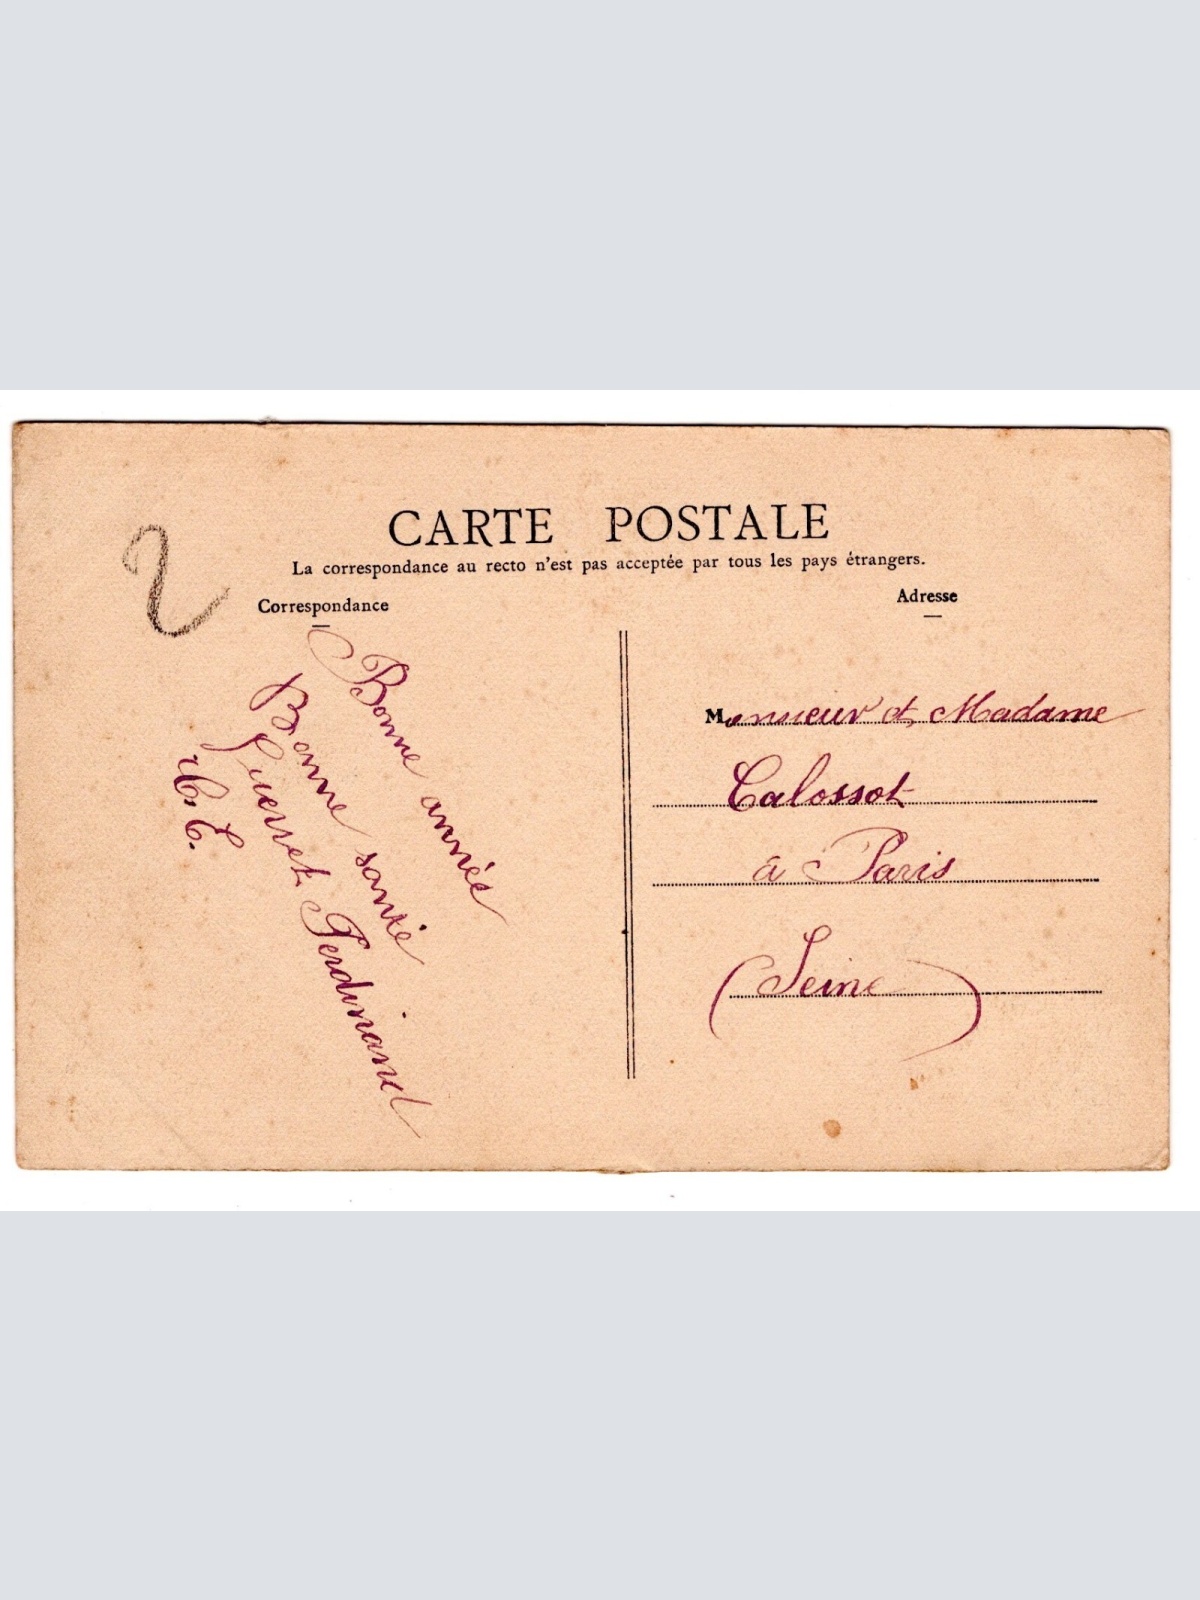 CARTE POSTALE
La correspondance au recto n'est pas acceptée par tous les pays étrangers.
Correspondance
Adresse
2
Bonne année
Bonne santé
Ferdinand
Monsieur et Madame
Calossot
à Paris
(Seine)